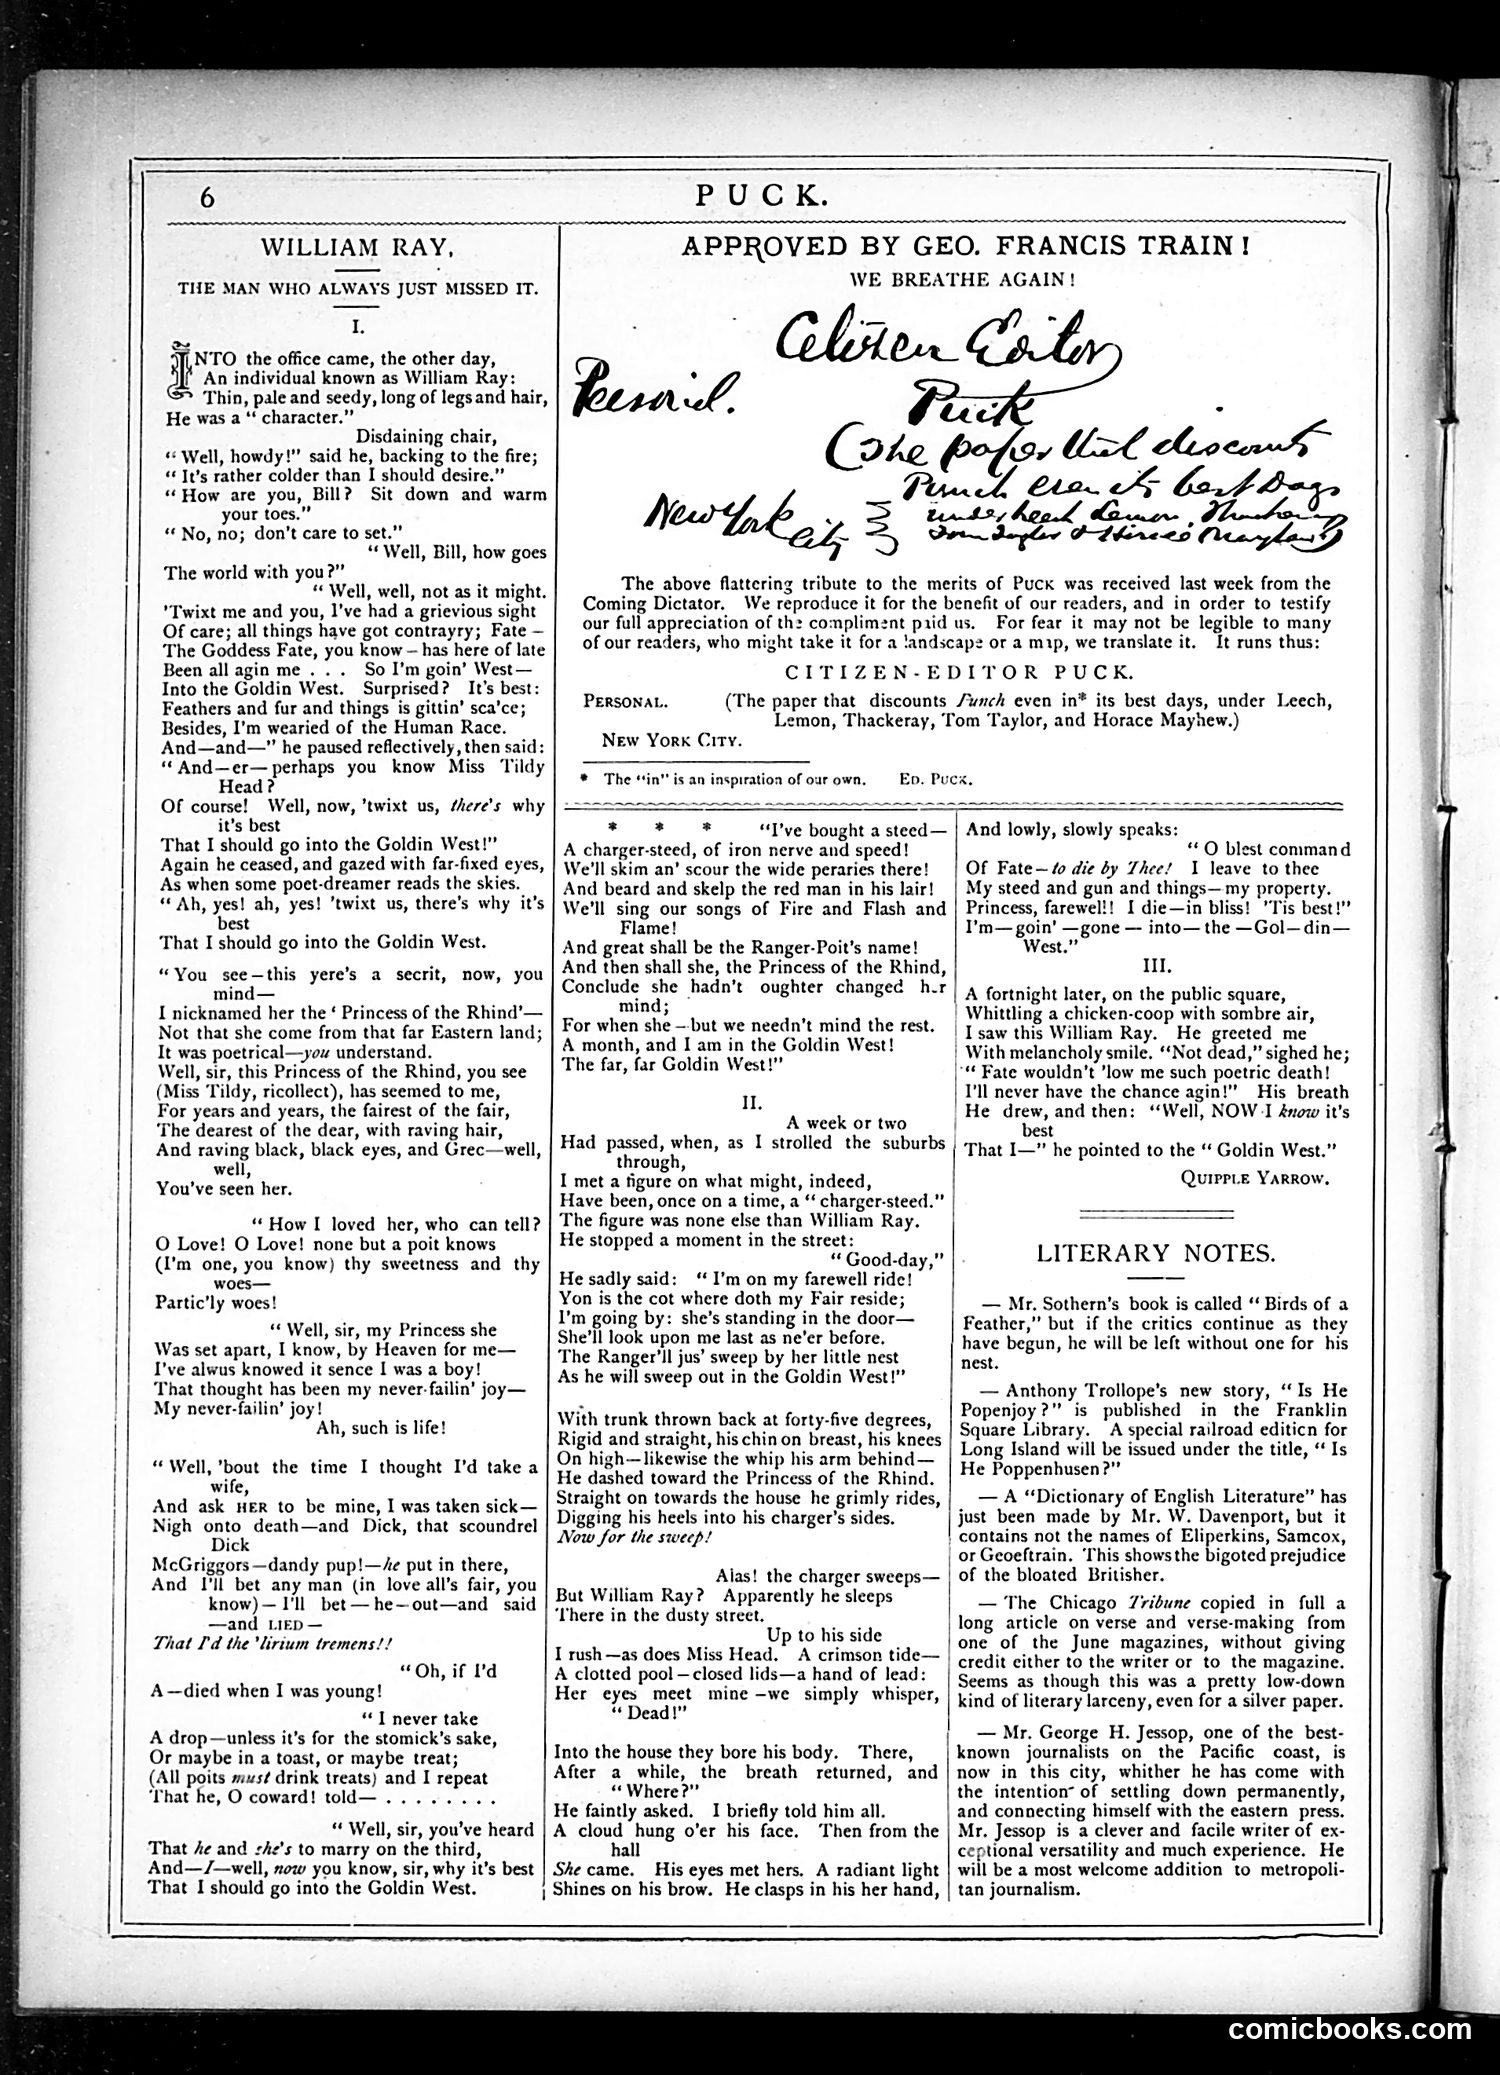 6
PUCK.
WILLIAM RAY,
THE MAN WHO ALWAYS JUST MISSED IT.
I.
INTO the office came, the other day,
An individual known as William Ray:
Thin, pale and seedy, long of legs and hair,
He was a “ character.”
Disdaining chair,
“ Well, howdy!” said he, backing to the fire;
“ It's rather colder than I should desire.”
“ How are you, Bill? Sit down and warm
your toes.”
“ No, no; don't care to set.”
“ Well, Bill, how goes
The world with you?”
“ Well, well, not as it might.
'Twixt me and you, I've had a grievious sight
Of care; all things have got contrayry; Fate –
The Goddess Fate, you know – has here of late
Been all agin me . . . So I'm goin' West—
Into the Goldin West. Surprised? It's best:
Feathers and fur and things is gittin' sca'ce;
Besides, I'm wearied of the Human Race.
And—and—” he paused reflectively, then said:
“ And—er—perhaps you know Miss Tildy
Head?
Of course! Well, now, 'twixt us, there's why
it's best
That I should go into the Goldin West!”
Again he ceased, and gazed with far-fixed eyes,
As when some poet-dreamer reads the skies.
“ Ah, yes! ah, yes! 'twixt us, there's why it's
best
That I should go into the Goldin West.
“ You see—this yere's a secrit, now, you
mind—
I nicknamed her the ‘ Princess of the Rhind’—
Not that she come from that far Eastern land;
It was poetrical—you understand.
Well, sir, this Princess of the Rhind, you see
(Miss Tildy, ricollect), has seemed to me,
For years and years, the fairest of the fair,
The dearest of the dear, with raving hair,
And raving black, black eyes, and Grec—well,
well,
You've seen her.
“ How I loved her, who can tell?
O Love! O Love! none but a poit knows
(I'm one, you know) thy sweetness and thy
woes—
Partic'ly woes!
“ Well, sir, my Princess she
Was set apart, I know, by Heaven for me—
I've alwus knowed it sence I was a boy!
That thought has been my never-failin' joy—
My never-failin' joy!
Ah, such is life!
“ Well, 'bout the time I thought I'd take a
wife,
And ask HER to be mine, I was taken sick—
Nigh onto death—and Dick, that scoundrel
Dick
McGriggors—dandy pup!—he put in there,
And I'll bet any man (in love all's fair, you
know)— I'll bet — he—out—and said
—and LIED—
That I'd the 'lirium tremens!!
“ Oh, if I'd
A—died when I was young!
“ I never take
A drop—unless it's for the stomick's sake,
Or maybe in a toast, or maybe treat;
(All poits must drink treats) and I repeat
That he, O coward! told— . . . . . . . .
“ Well, sir, you've heard
That he and she's to marry on the third,
And—I—well, now you know, sir, why it's best
That I should go into the Goldin West.
APPROVED BY GEO. FRANCIS TRAIN!
WE BREATHE AGAIN!
Citizen Editor
Personal.
Puck
(The paper that discounts
Punch even its best Days
New York
City
under Leech Lemon Thackeray
Tom Taylor & Horace Mayhew)
The above flattering tribute to the merits of PUCK was received last week from the
Coming Dictator. We reproduce it for the benefit of our readers, and in order to testify
our full appreciation of the compliment paid us. For fear it may not be legible to many
of our readers, who might take it for a landscape or a map, we translate it. It runs thus:
CITIZEN-EDITOR PUCK.
PERSONAL. (The paper that discounts Punch even in* its best days, under Leech,
Lemon, Thackeray, Tom Taylor, and Horace Mayhew.)
NEW YORK CITY.
* The “in” is an inspiration of our own. ED. PUCK.
* * * “I've bought a steed—
A charger-steed, of iron nerve and speed!
We'll skim an' scour the wide peraries there!
And beard and skelp the red man in his lair!
We'll sing our songs of Fire and Flash and
Flame!
And great shall be the Ranger-Poit's name!
And then shall she, the Princess of the Rhind,
Conclude she hadn't oughter changed her
mind;
For when she—but we needn't mind the rest.
A month, and I am in the Goldin West!
The far, far Goldin West!”
II.
A week or two
Had passed, when, as I strolled the suburbs
through,
I met a figure on what might, indeed,
Have been, once on a time, a “ charger-steed.”
The figure was none else than William Ray.
He stopped a moment in the street:
“ Good-day,”
He sadly said: “ I'm on my farewell ride!
Yon is the cot where doth my Fair reside;
I'm going by: she's standing in the door—
She'll look upon me last as ne'er before.
The Ranger'll jus' sweep by her little nest
As he will sweep out in the Goldin West!”
With trunk thrown back at forty-five degrees,
Rigid and straight, his chin on breast, his knees
On high—likewise the whip his arm behind—
He dashed toward the Princess of the Rhind.
Straight on towards the house he grimly rides,
Digging his heels into his charger's sides.
Now for the sweep!
Alas! the charger sweeps—
But William Ray? Apparently he sleeps
There in the dusty street.
Up to his side
I rush—as does Miss Head. A crimson tide—
A clotted pool—closed lids—a hand of lead:
Her eyes meet mine—we simply whisper,
“ Dead!”
Into the house they bore his body. There,
After a while, the breath returned, and
“ Where?”
He faintly asked. I briefly told him all.
A cloud hung o'er his face. Then from the
hall
She came. His eyes met hers. A radiant light
Shines on his brow. He clasps in his her hand,
And lowly, slowly speaks:
“ O blest command
Of Fate—to die by Thee! I leave to thee
My steed and gun and things—my property.
Princess, farewell! I die—in bliss! 'Tis best!”
I'm—goin' —gone — into— the —Gol—din—
West.”
III.
A fortnight later, on the public square,
Whittling a chicken-coop with sombre air,
I saw this William Ray. He greeted me
With melancholy smile. “Not dead,” sighed he;
“ Fate wouldn't 'low me such poetric death!
I'll never have the chance agin!” His breath
He drew, and then: “Well, NOW I know it's
best
That I—” he pointed to the “ Goldin West.”
QUIPPLE YARROW.
LITERARY NOTES.
— Mr. Sothern's book is called “ Birds of a
Feather,” but if the critics continue as they
have begun, he will be left without one for his
nest.
— Anthony Trollope's new story, “ Is He
Popenjoy?” is published in the Franklin
Square Library. A special railroad edition for
Long Island will be issued under the title, “ Is
He Poppenhusen?”
— A “Dictionary of English Literature” has
just been made by Mr. W. Davenport, but it
contains not the names of Eliperkins, Samcox,
or Geoeftrain. This shows the bigoted prejudice
of the bloated Britisher.
— The Chicago Tribune copied in full a
long article on verse and verse-making from
one of the June magazines, without giving
credit either to the writer or to the magazine.
Seems as though this was a pretty low-down
kind of literary larceny, even for a silver paper.
— Mr. George H. Jessop, one of the best-
known journalists on the Pacific coast, is
now in this city, whither he has come with
the intention of settling down permanently,
and connecting himself with the eastern press.
Mr. Jessop is a clever and facile writer of ex-
ceptional versatility and much experience. He
will be a most welcome addition to metropoli-
tan journalism.
comicbooks.com